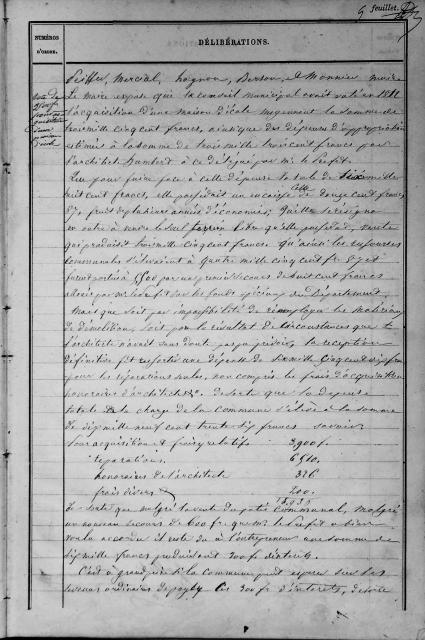 5 feuillet.
NUMÉROS D'ORDRE.
DÉLIBÉRATIONS.
Peiffer, Mercial, Hoignon, Berson, et Monnier maire
Le maire expose que le conseil municipal avait voté en
l'acquisition d'une maison d'école moyennant la somme de
trois mille cinq cent francs, ainsi que des dépenses d'appropriation
estimées à la somme de trois mille trois cent francs par
l'architecte Humbert à ce désigné par mr. le Préfet.
Que pour faire face à cette dépense totale de mille
huit cent francs, elle possédait un encaisse de douze cent francs
fruit de plusieurs années d'économies; Qu'elle se résigna
en outre à vendre le seul libre qu'elle possédait, vente
qui produisit trois mille cinq cent francs. Qu'ainsi les ressources
communales s'élevaient à quatre mille cinq cent fr. et
furent portées à par un premier secours de huit cent francs
alloué par mr. le Préfet sur les fonds spéciaux du Département.
Mais que soit par impossibilité de réemployer les matériaux
de démolition, soit par le résultat de circonstances que
l'architecte n'avait sans doute pas pu prévoir, la réception
définitive fit ressortir une dépense de six mille cinq cent dix francs
pour les réparations seules, non compris les frais d'acquisition
honoraires d'architecte &a. de sorte que la dépense
totale à la charge de la commune s'élève à la somme
de dix mille neuf cent trente six francs savoir
Pour acquisition et frais y relatifs 3,900 f.
réparations. 6510.
honoraires de l'architecte 326
frais divers 200.
De sorte que malgré la vente du pâtis communal, malgré
un nouveau secours de 600 fr. que mr. le Préfet a bien
voulu accorder il reste dû à l'entrepreneur une somme de
six mille francs produisant 300 fr. d'intérêts.
C'est à grand peine si la commune peut espérer sur ses
revenus ordinaires de payer les 300 fr. d'intérêts, de sorte